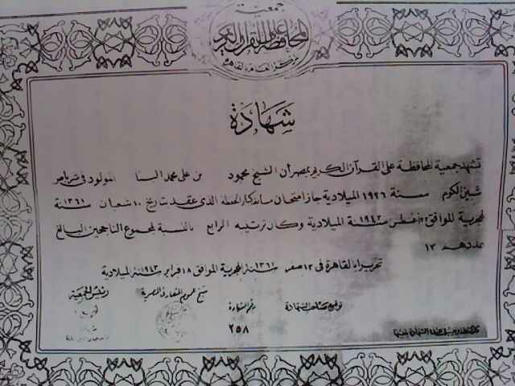 جمعية
المحافظة على القرآن الكريم
شهادة
تشهد جمعية المحافظة على القرآن الكريم بمصر أن الشيخ محمود بن على محمد البنا المولود فى شبرا باص
شبين الكوم سنة ١٩٢٦ الميلادية جاز امتحان مسابقة كبار الحفظة الذى عقد بتاريخ ١٠ شعبان سنة ١٣٦١
الهجرية الموافق أغسطس سنة ١٩٤٢ الميلادية وكان ترتيبه الرابع بالنسبة لمجموع الناجحين البالغ
عددهم ١٣
تحريرا بالقاهرة فى ١٢ صفر سنة ١٣٦٢ الهجرية الموافق ١٨ فبراير سنة ١٩٤٣ الميلادية
رئيس الجمعية
شيخ عموم المقارئ المصرية
رقم الشهادة
توقيع صاحب الشهادة
٢٥٨